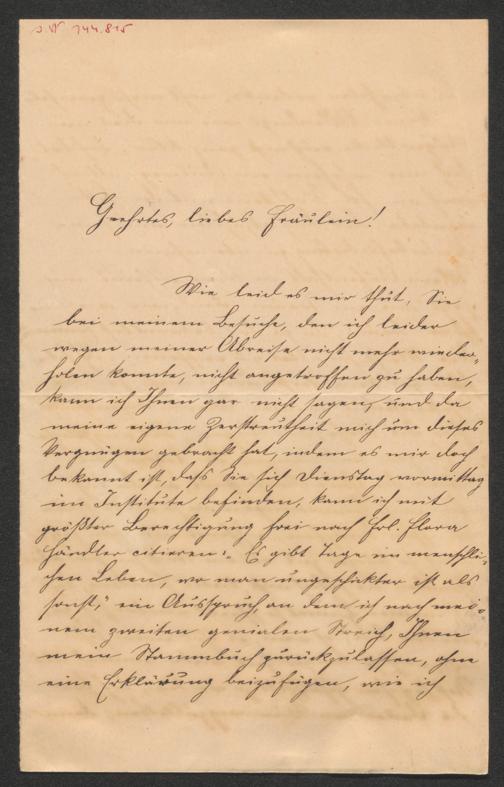 J. N 144.815
Geehrtes, liebes Fräulein!
Wie leid es mir thut, Sie
bei meinem Besuche, den ich leider
wegen meiner Abreise nicht mehr wieder-
holen konnte, nicht angetroffen zu haben,
kann ich Ihnen gar nicht sagen, und da
meine eigene Zerstreutheit mich um dieses
Vergnügen gebracht hat, indem es mir doch
bekannt ist, dass Sie sich Dienstag vormittag
im Institute befinden, kann ich mit
größter Berechtigung frei nach Frl. Flora
Händler citieren: „Es gibt Tage im menschli-
chen Leben, wo man ungeschikter ist als
sonst," ein Ausspruch an dem ich nach mei-
nem zweiten genialen Streich, Ihnen
mein Stammbuch zurückzulassen, ohne
eine Erklärung beizufügen, wie ich